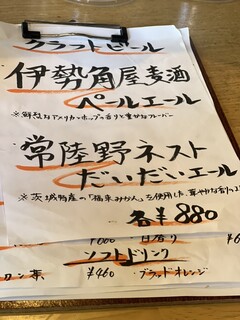 クラフトビール
伊勢角屋麦酒
ペールエール
※鮮烈なアメリカンホップの香りと豊かなフレーバー
常陸野ネスト
だいだいエール
※茨城特産の「福来みかん」を使用した、爽やかな香り
各¥880
1000
ソフトドリンク
ロン茶 ¥460 ブラッドオレンジ